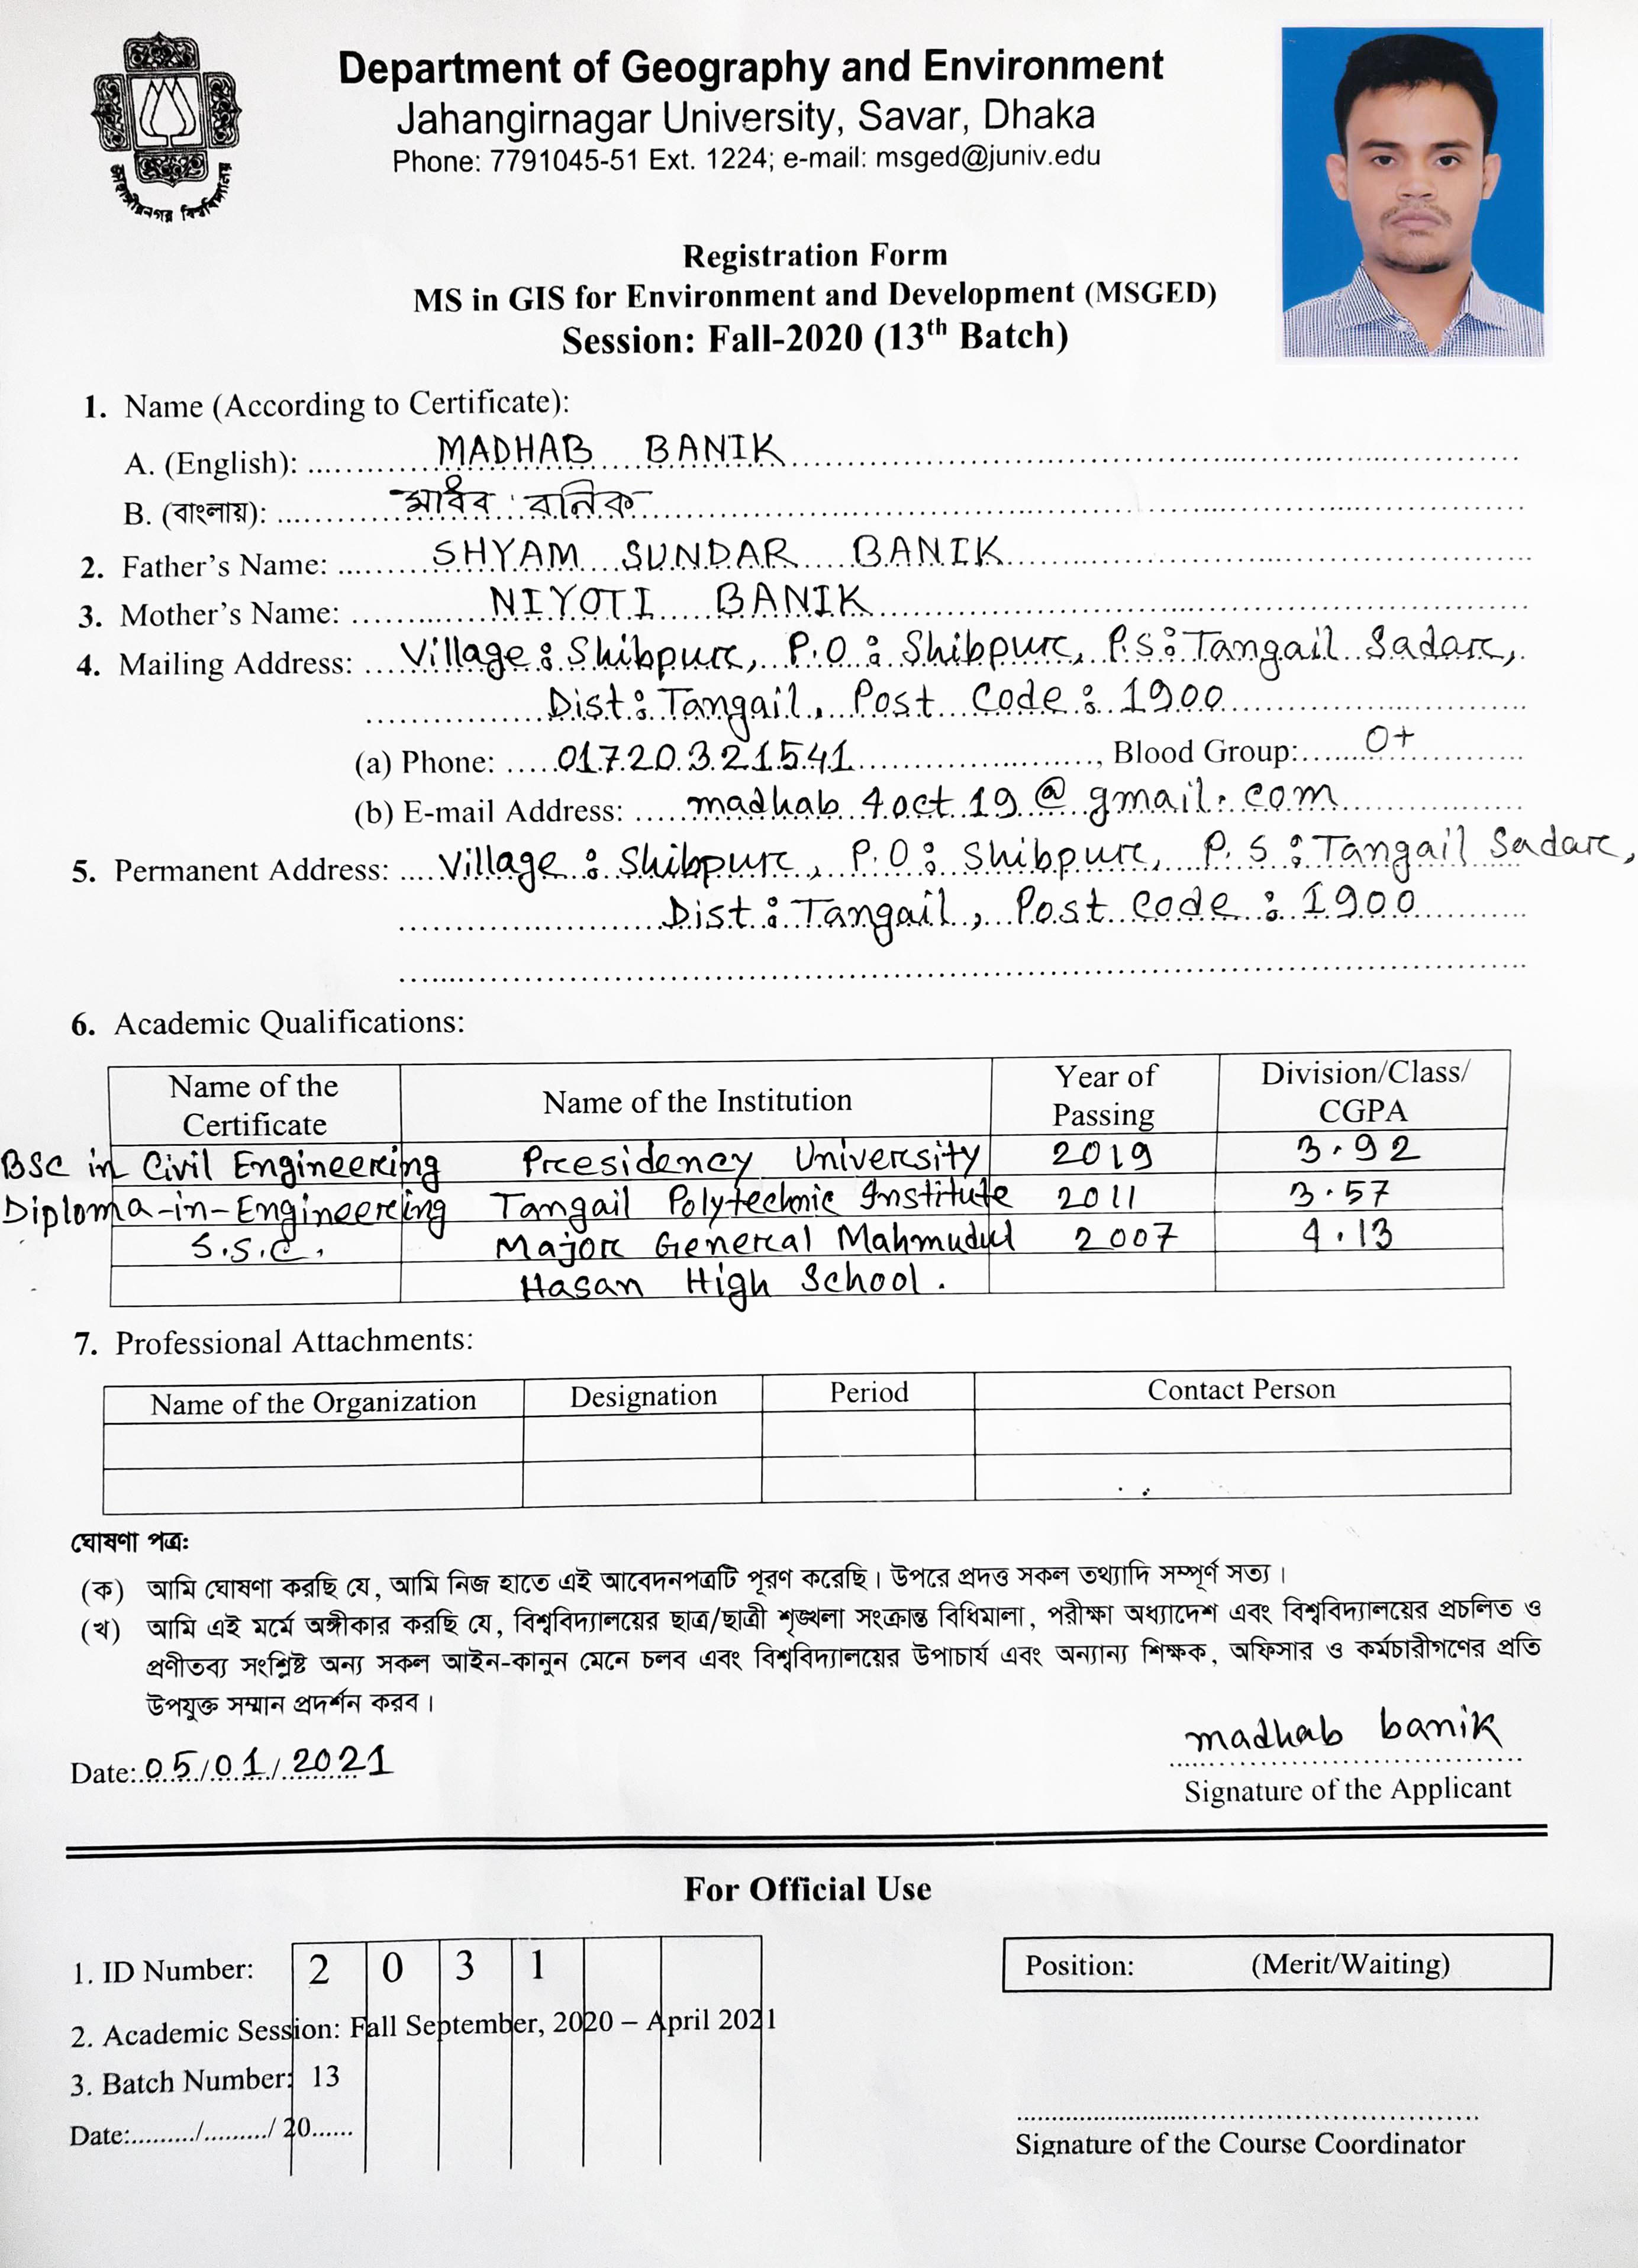 Department of Geography and Environment
Jahangirnagar University, Savar, Dhaka
Phone: 7791045-51 Ext. 1224; e-mail: msged@juniv.edu
জাহাঙ্গীরনগর বিশ্ববিদ্যালয়
Registration Form
MS in GIS for Environment and Development (MSGED)
Session: Fall-2020 (13th Batch)
1. Name (According to Certificate):
A. (English): MADHAB BANIK
B. (বাংলায়): মাধব বনিক
2. Father's Name: SHYAM SUNDAR BANIK
3. Mother's Name: NIYOTI BANIK
4. Mailing Address: Village: Shibpur, P.O: Shibpur, P.S: Tangail Sadar,
Dist: Tangail, Post Code: 1900
(a) Phone: 01720321541, Blood Group: O+
(b) E-mail Address: madhab4oct19@gmail.com
5. Permanent Address: Village: Shibpur, P.O: Shibpur, P.S: Tangail Sadar,
Dist: Tangail, Post Code: 1900
6. Academic Qualifications:
Name of the Certificate Name of the Institution Year of Passing Division/Class/CGPA
BSc in Civil Engineering Presidency University 2019 3.92
Diploma-in-Engineering Tangail Polytechnic Institute 2011 3.57
S.S.C. Major General Mahmudul 2007 4.13
Hasan High School.
7. Professional Attachments:
Name of the Organization Designation Period Contact Person
ঘোষণা পত্র:
(ক) আমি ঘোষণা করছি যে, আমি নিজ হাতে এই আবেদনপত্রটি পূরণ করেছি। উপরে প্রদত্ত সকল তথ্যাদি সম্পূর্ণ সত্য।
(খ) আমি এই মর্মে অঙ্গীকার করছি যে, বিশ্ববিদ্যালয়ের ছাত্র/ছাত্রী শৃঙ্খলা সংক্রান্ত বিধিমালা, পরীক্ষা অধ্যাদেশ এবং বিশ্ববিদ্যালয়ের প্রচলিত ও
প্রণীতব্য সংশ্লিষ্ট অন্য সকল আইন-কানুন মেনে চলব এবং বিশ্ববিদ্যালয়ের উপাচার্য এবং অন্যান্য শিক্ষক, অফিসার ও কর্মচারীগণের প্রতি
উপযুক্ত সম্মান প্রদর্শন করব।
madhab banik
Date: 05/01/2021
Signature of the Applicant
For Official Use
1. ID Number: 2 0 3 1
Position: (Merit/Waiting)
2. Academic Session: Fall September, 2020 – April 2021
3. Batch Number: 13
Date:........./........./ 20......
Signature of the Course Coordinator